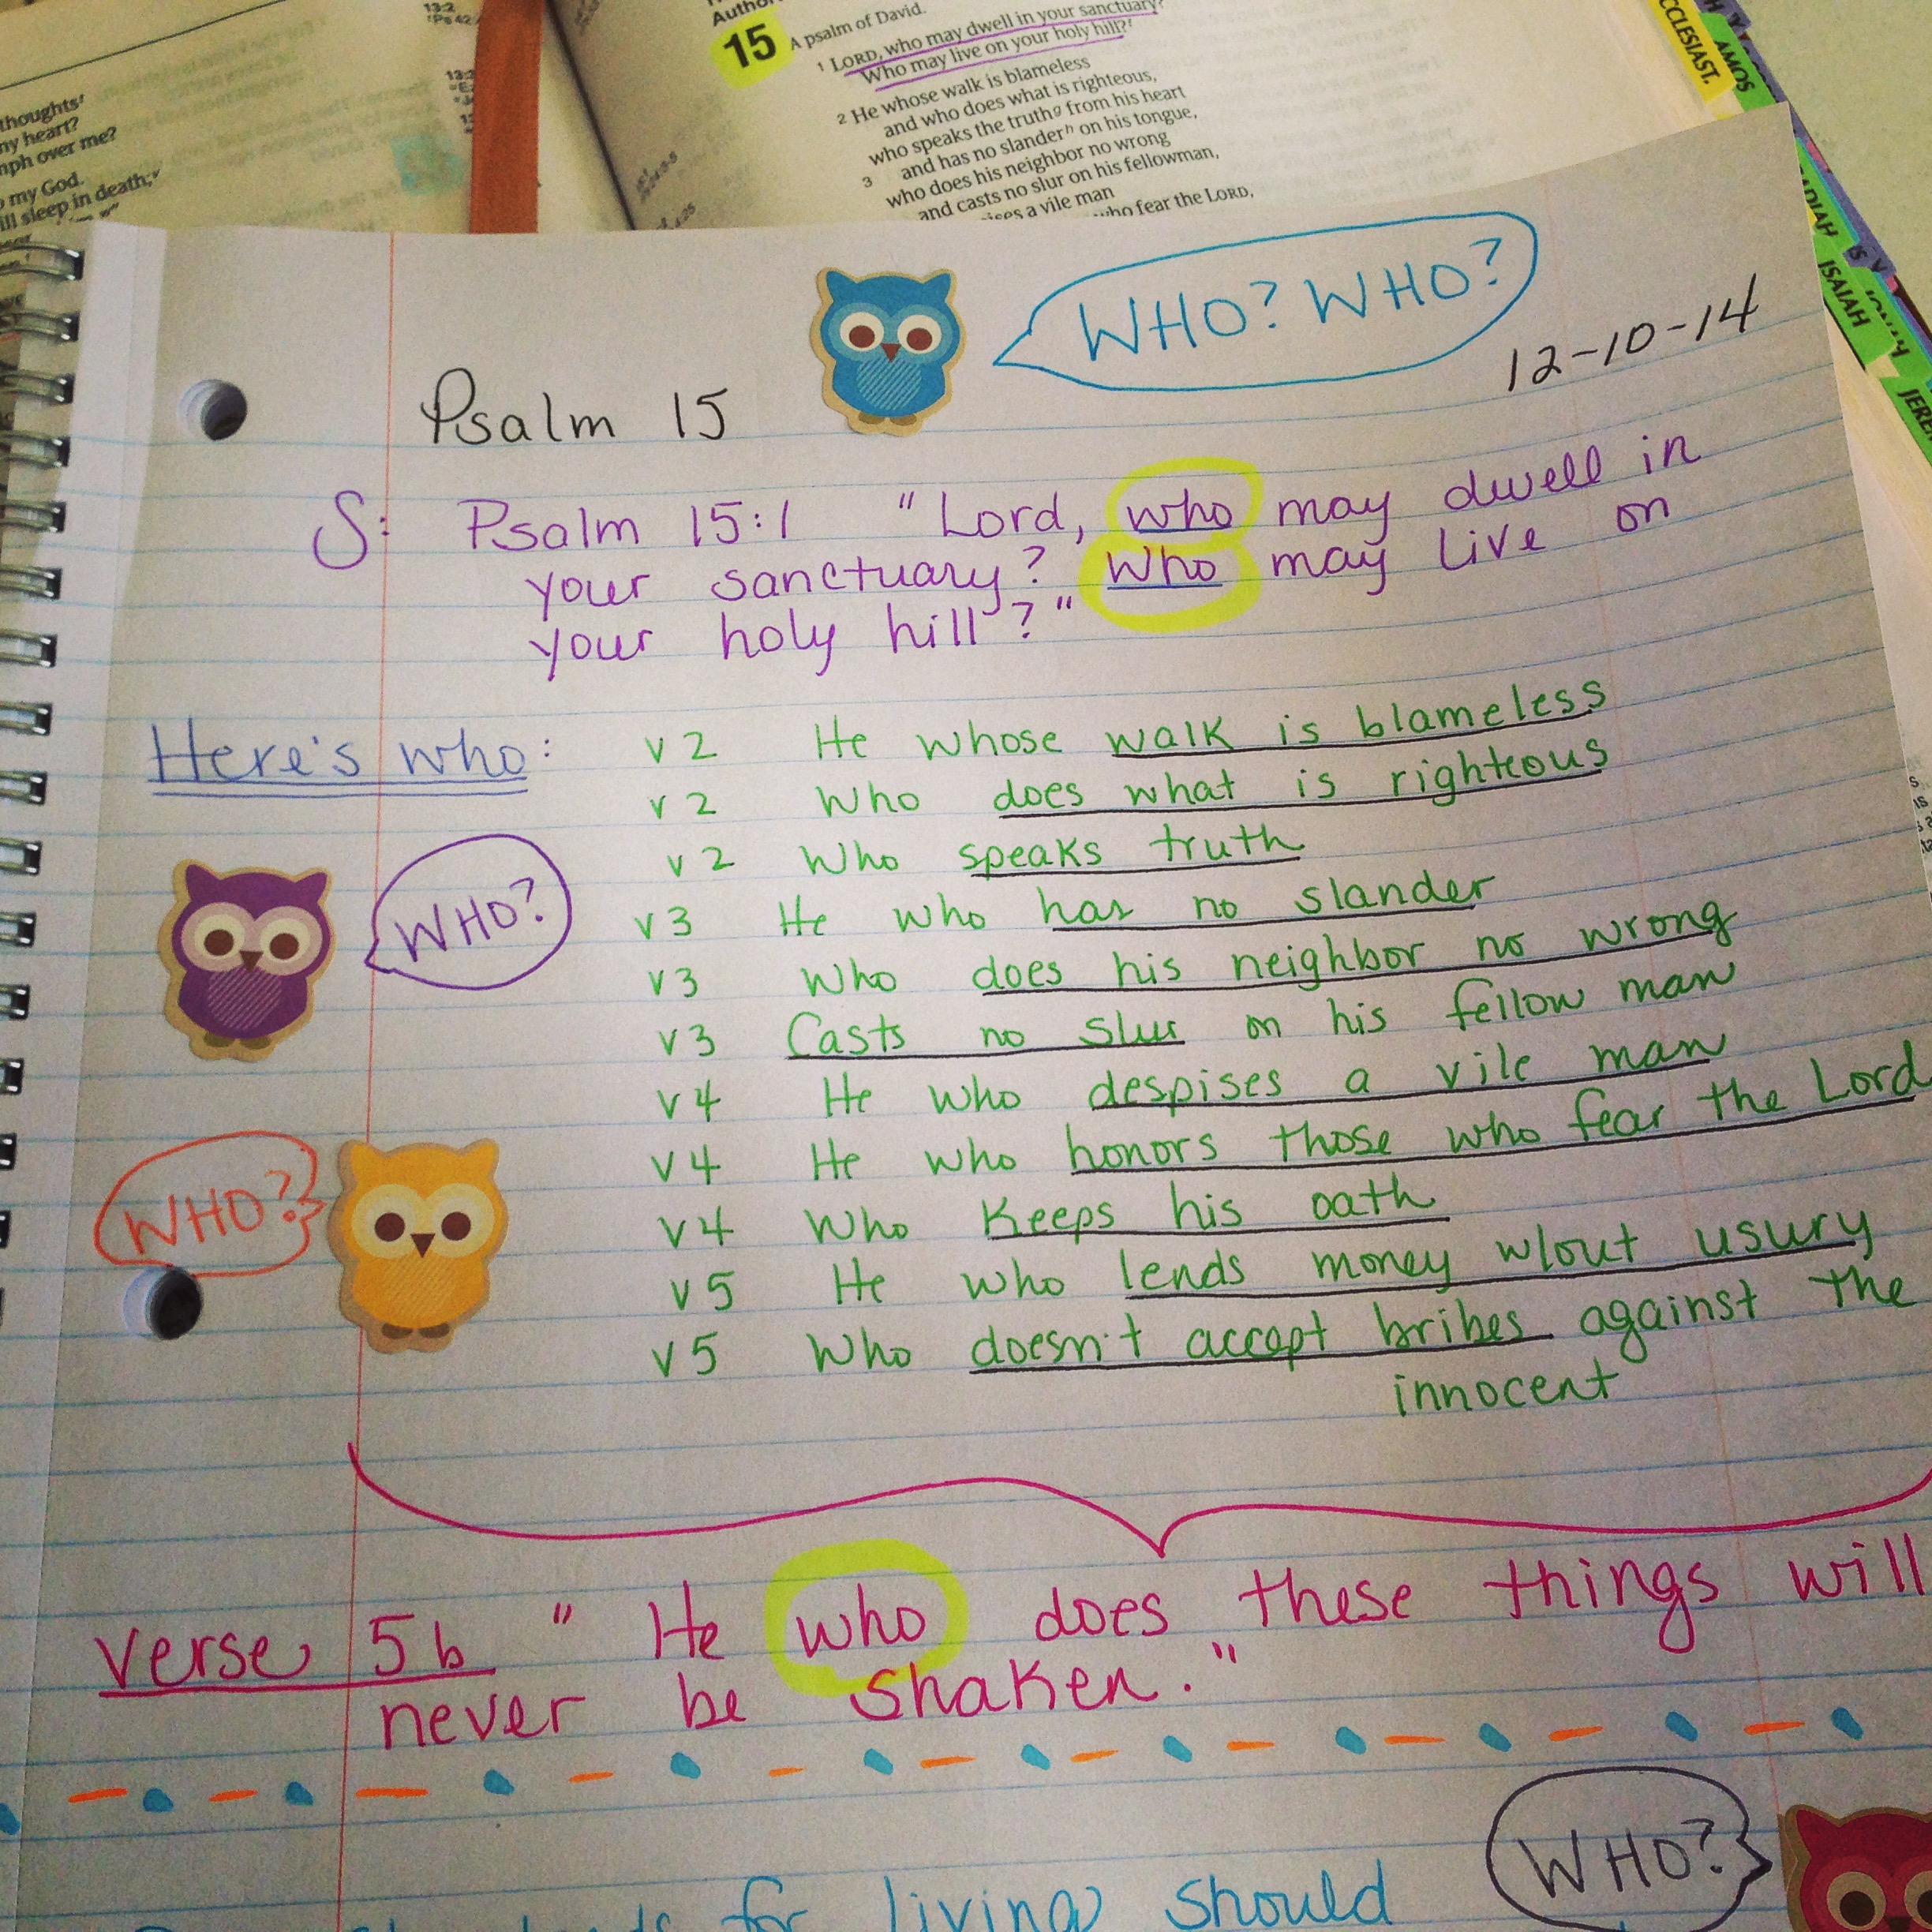 thoughts
my heart?
over me?
my God.
sleep in death;
13:2
15 A psalm of David.
1 LORD, who may dwell in your sanctuary?
Who may live on your holy hill?
2 He whose walk is blameless
and who does what is righteous,
who speaks the truth from his heart
3 and has no slander on his tongue,
who does his neighbor no wrong
and casts no slur on his fellowman,
a vile man
who fear the LORD,
ECCLESIAST.
AMOS
ISAIAH
WHO? WHO?
12-10-14
Psalm 15
S: Psalm 15:1 "Lord, who may dwell in
your sanctuary? Who may live on
your holy hill?"
Here's who: v2 He whose walk is blameless
v2 Who does what is righteous
v2 Who speaks truth
v3 He who has no slander
WHO?
v3 Who does his neighbor no wrong
v3 Casts no slur on his fellow man
v4 He who despises a vile man
v4 He who honors those who fear the Lord
WHO?
v4 Who keeps his oath
v5 He who lends money w/out usury
v5 Who doesn't accept bribes against the
innocent
verse 5b "He who does these things will
never be shaken."
WHO?
for living should